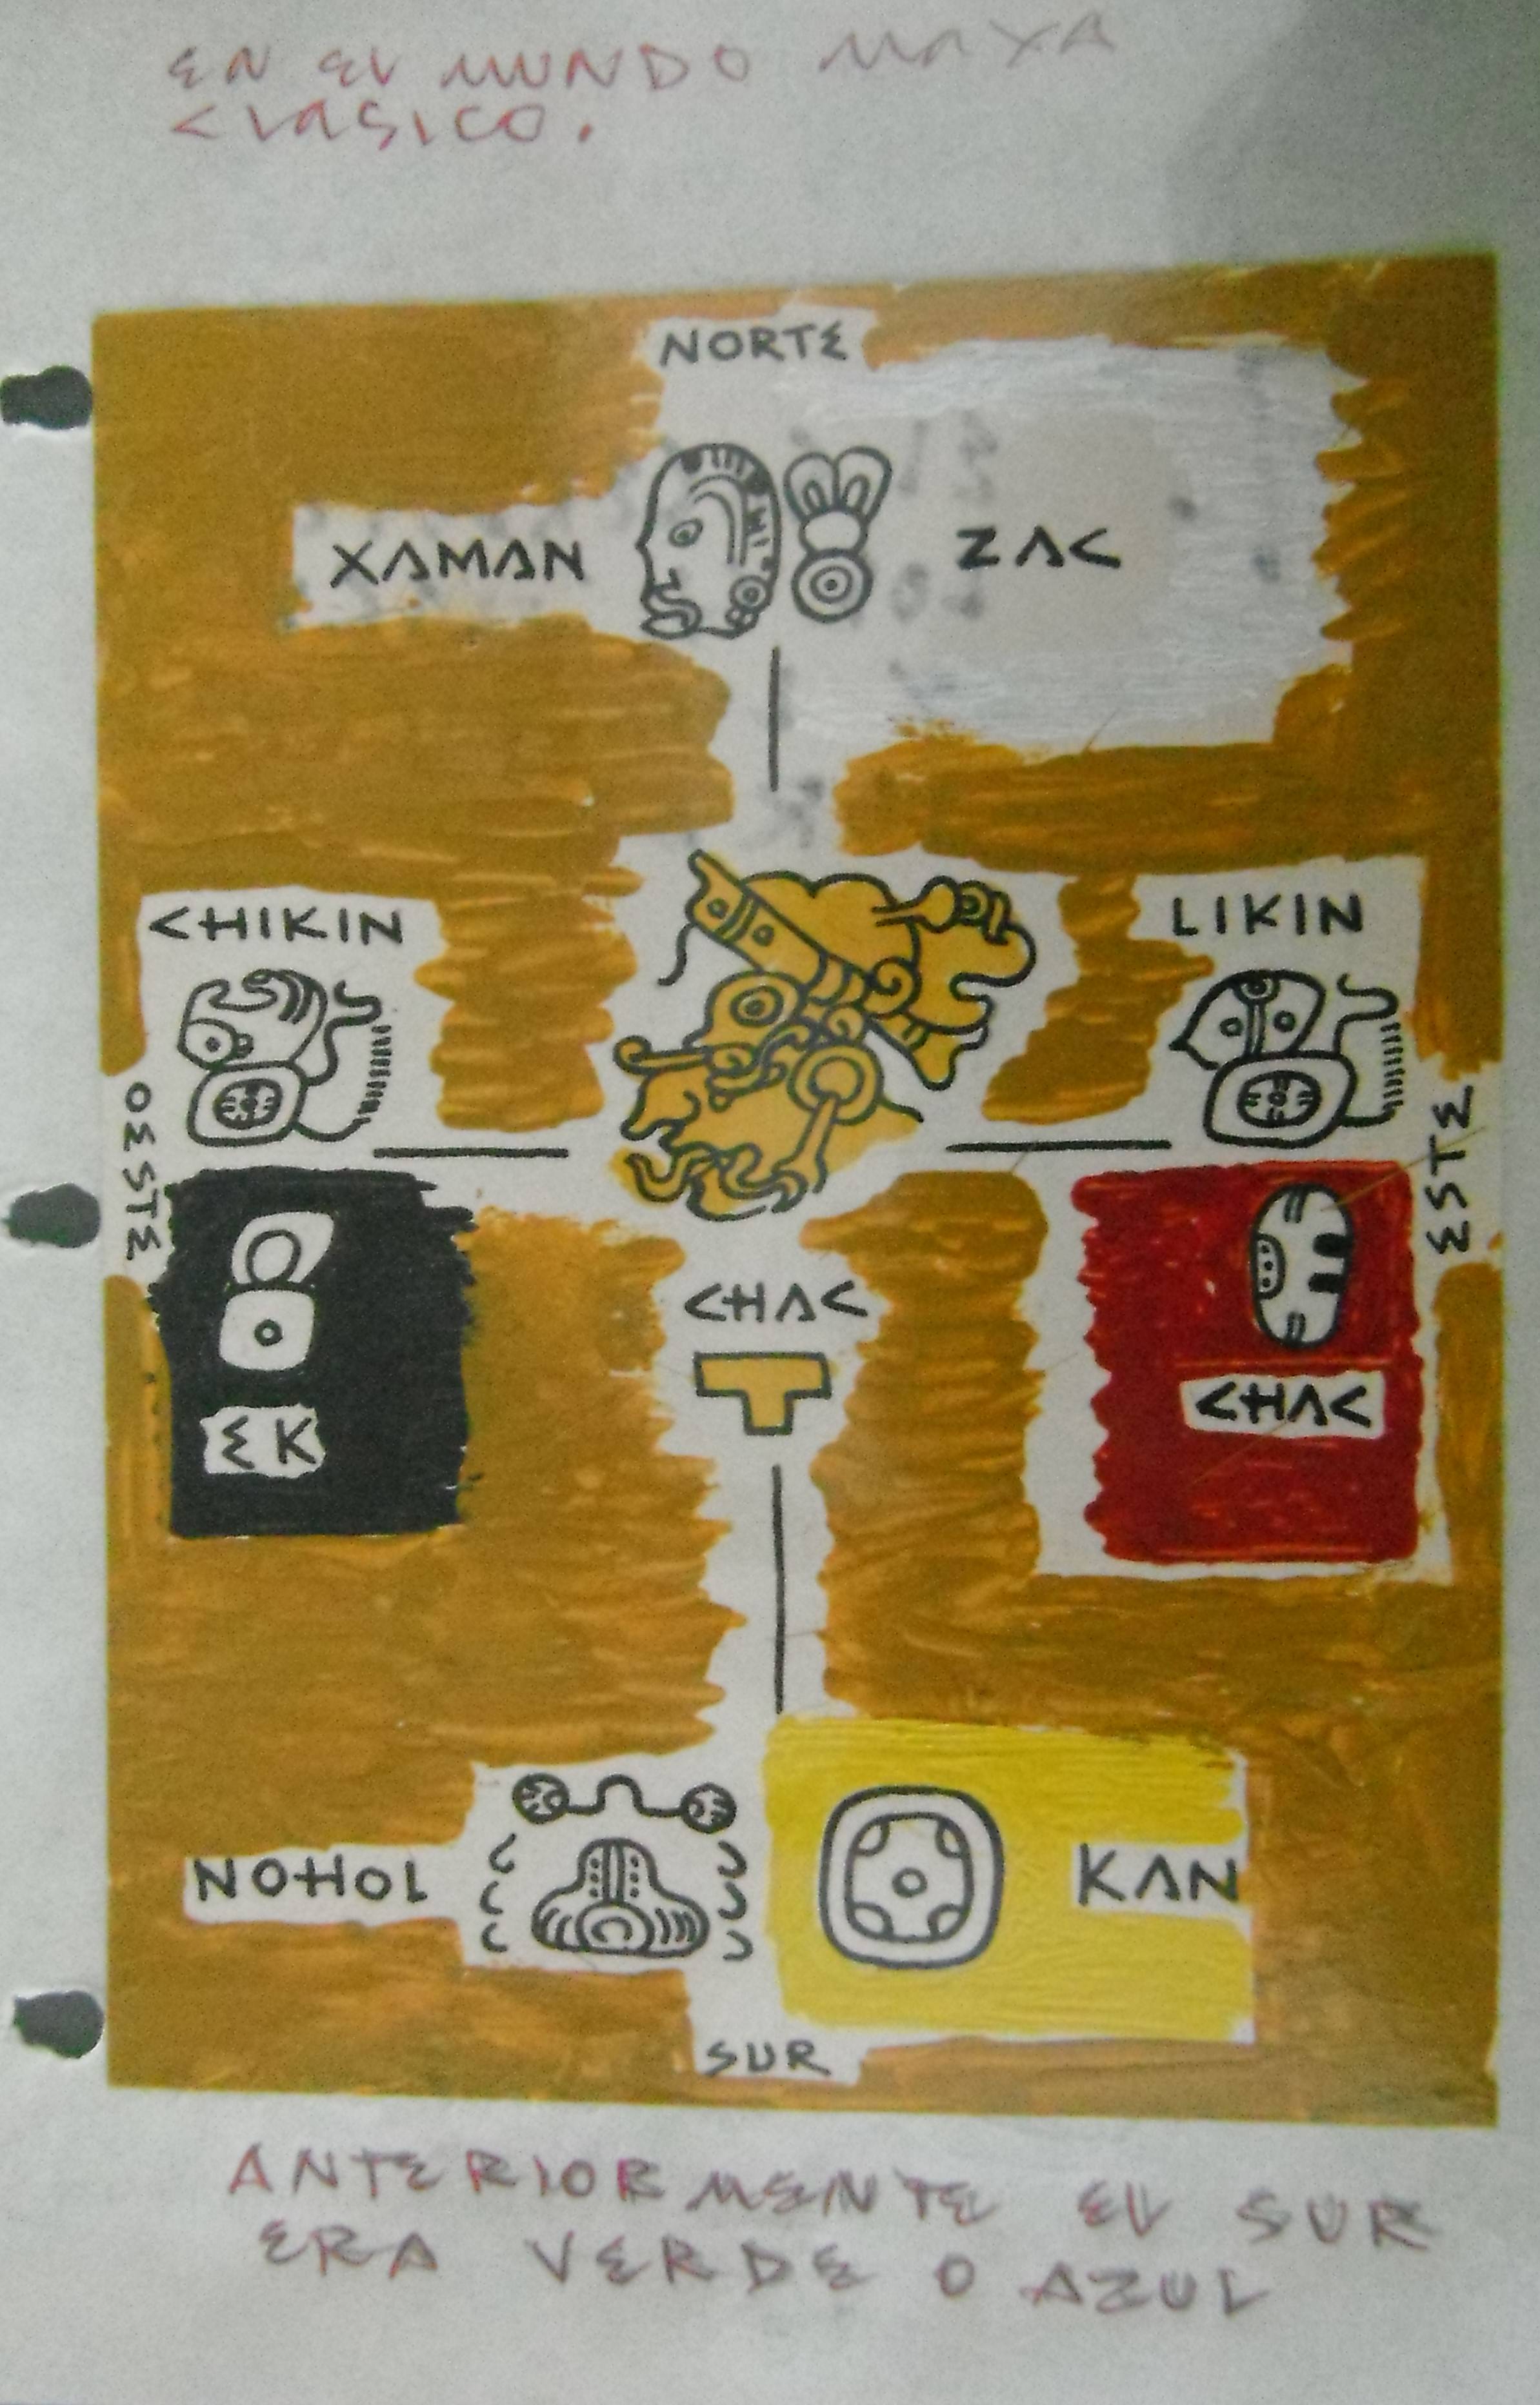 EN EL MUNDO MAYA
CLASICO.
NORTE
XAMAN
ZAC
CHIKIN
LIKIN
OESTE
ESTE
CHAC
EK
CHAC
NOHOL
KAN
SUR
ANTERIORMENTE EL SUR
ERA VERDE O AZUL